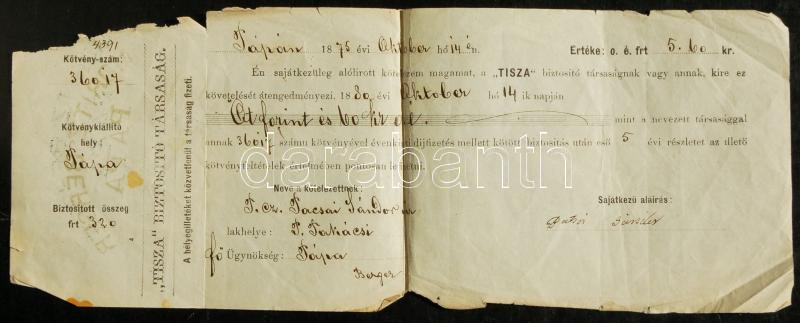 4391
Kötvény-szám:
36017
Kötvénykiállító
hely:
Pápa
Biztosított összeg
frt 320
„TISZA" BIZTOSÍTÓ TÁRSASÁG.
A bélyegilletéket közvetlenül a társaság fizeti.
Pápán 1875 évi Oktober hó 14 én. Értéke: o. é. frt 5.60 kr.
Én sajátkezüleg alólirott kötelezem magamat, a „TISZA" biztositó társaságnak vagy annak, kire ez
követelését átengedményezi. 1880 évi Oktober hó 14 ik napján
Öt forint és 60 kr mint a nevezett társasággal
annak 36017 számu kötvényével évenkénti díjfizetés mellett kötött biztositás után eső 5 évi részletet az illető
kötvényfeltételek értelmében pontosan lefizetni.
Neve a kötelezettnek:
T. cz. Pacsai Sándor
lakhelye: P. Takácsi
fő Ügynökség: Pápa
Berger
Sajátkezű aláirás:
Sándor
darabanth